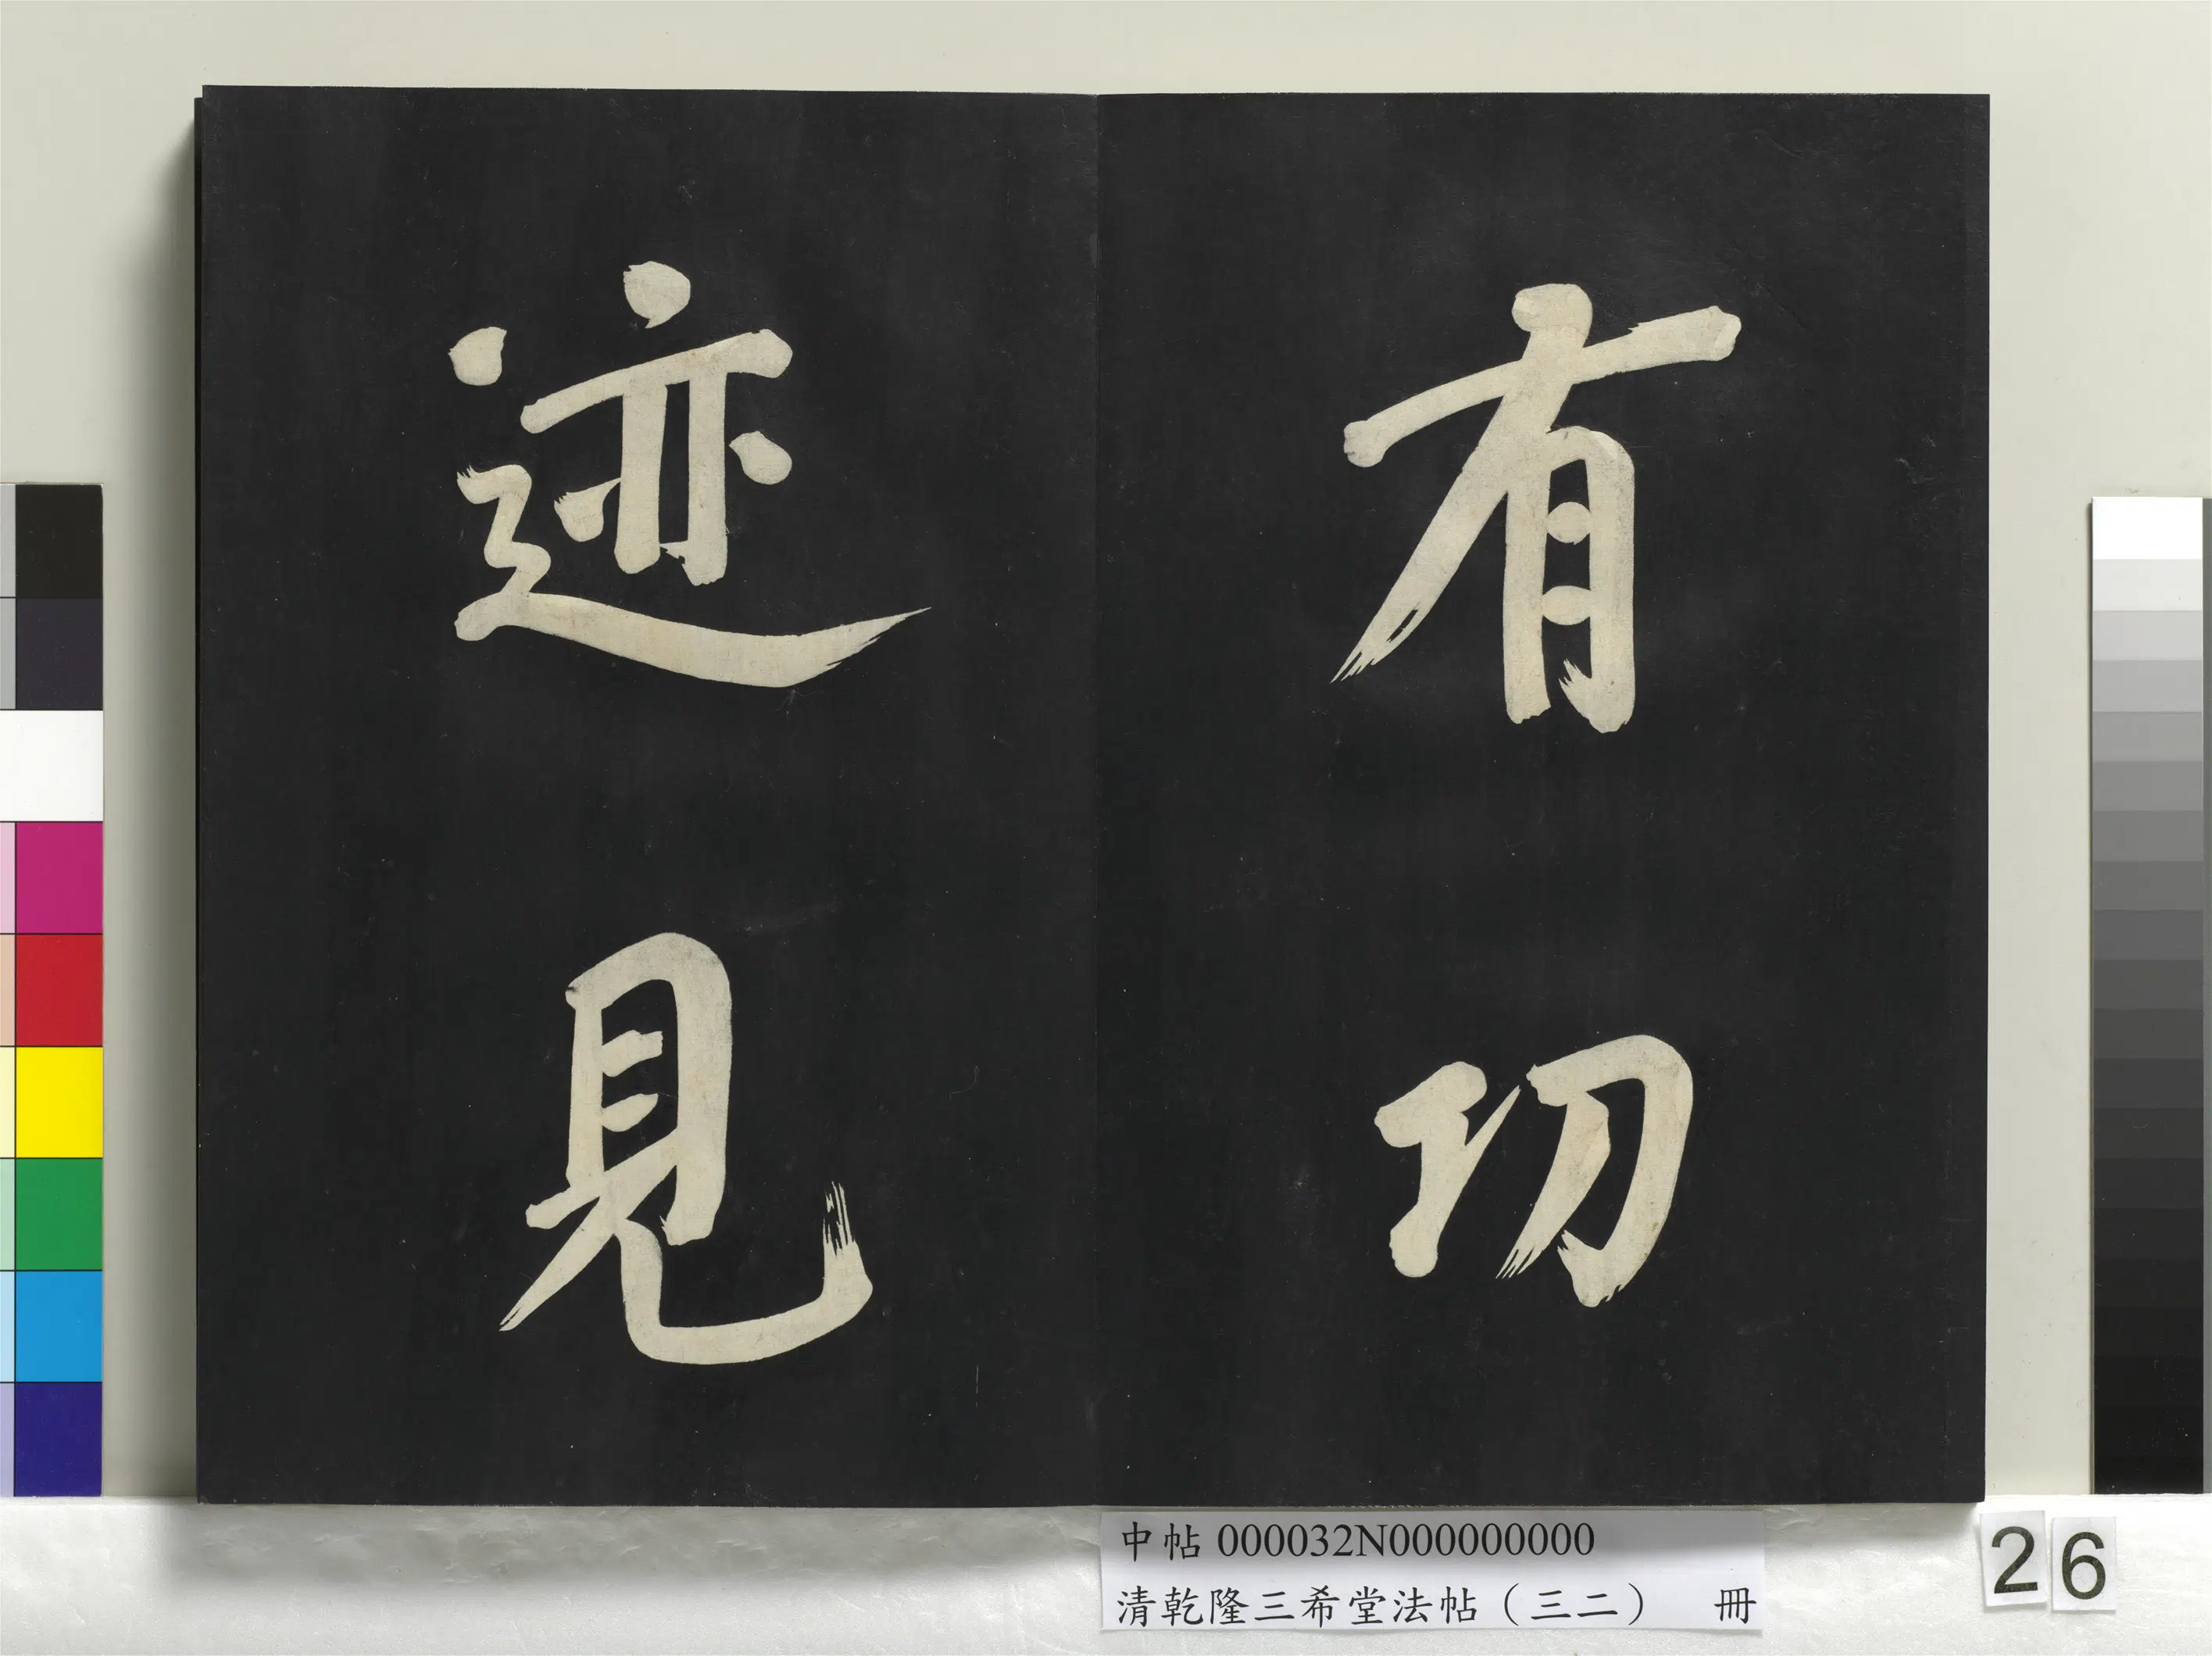 有功
迹見
中帖 000032N000000000
清乾隆三希堂法帖（三二） 冊
26